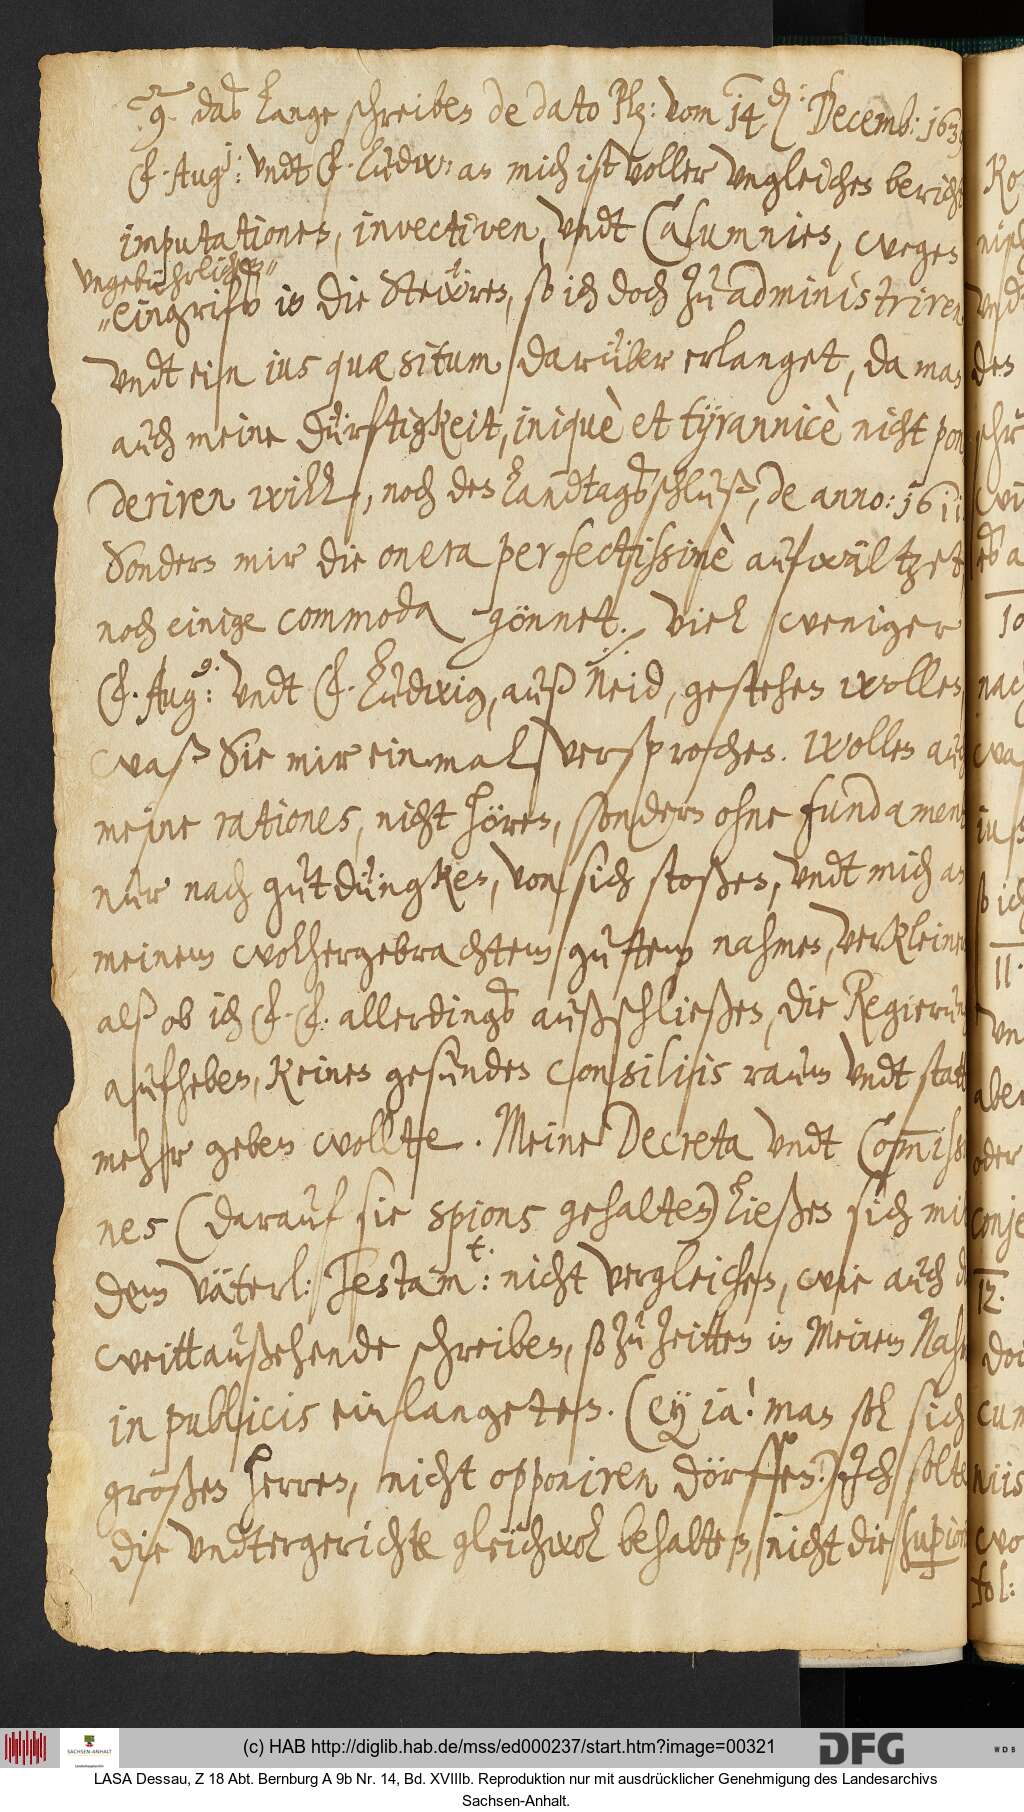 9. das lange schreiben de dato Plz: vom 14. Decemb: 163
F. Augi: undt F. Ludw: an mich ist voller ungleiches bericht
imputationes, invectiven, undt Calumnies, weges
ungebührlichen
eingriffs in die Stewren, so ich doch zu administriren
undt ein ius quæsitum darüber erlanget, da man
auch meine dürftigkeit, iniquè et tÿrannicè nicht pon
deriren will, noch den Landtagsschluß, de anno: 1611
Sondern mir die onera perfectissimè aufwältzet
noch einige commoda gönnet. viel weniger
F. Aug: undt F. Ludwig, auß Neid, gestehen wollen,
waß Sie mir einmal versprochen. Wollen auch
meine rationes, nicht hören, sondern ohne fundament
nur nach gutdüngken, von sich stoßen, undt mich an
meinem wolhergebrachtem guttem nahmen, verkleinern
alß ob ich F. F. allerdings außschließen, die Regierung
aufheben, keinen gesunden Consiliis raum undt statt
mehr geben wollte. Meine Decreta undt Commissi
nes (darauf sie spions gehalten) ließen sich mit
dem väterl: Testamt: nicht vergleichen, wie auch d
weittaußehende schreiben, so zu zeitten in Meinem Nahmen
in publicis einlangeten. (Ey ia! man sol sich
großen herren, nicht opponiren dörffen.) Ich solte
die undtergerichte gleichwol behalten, nicht die superior
(c) HAB http://diglib.hab.de/mss/ed000237/start.htm?image=00321
SACHSEN-ANHALT
DFG
WDB
LASA Dessau, Z 18 Abt. Bernburg A 9b Nr. 14, Bd. XVIIIb. Reproduktion nur mit ausdrücklicher Genehmigung des Landesarchivs
Sachsen-Anhalt.